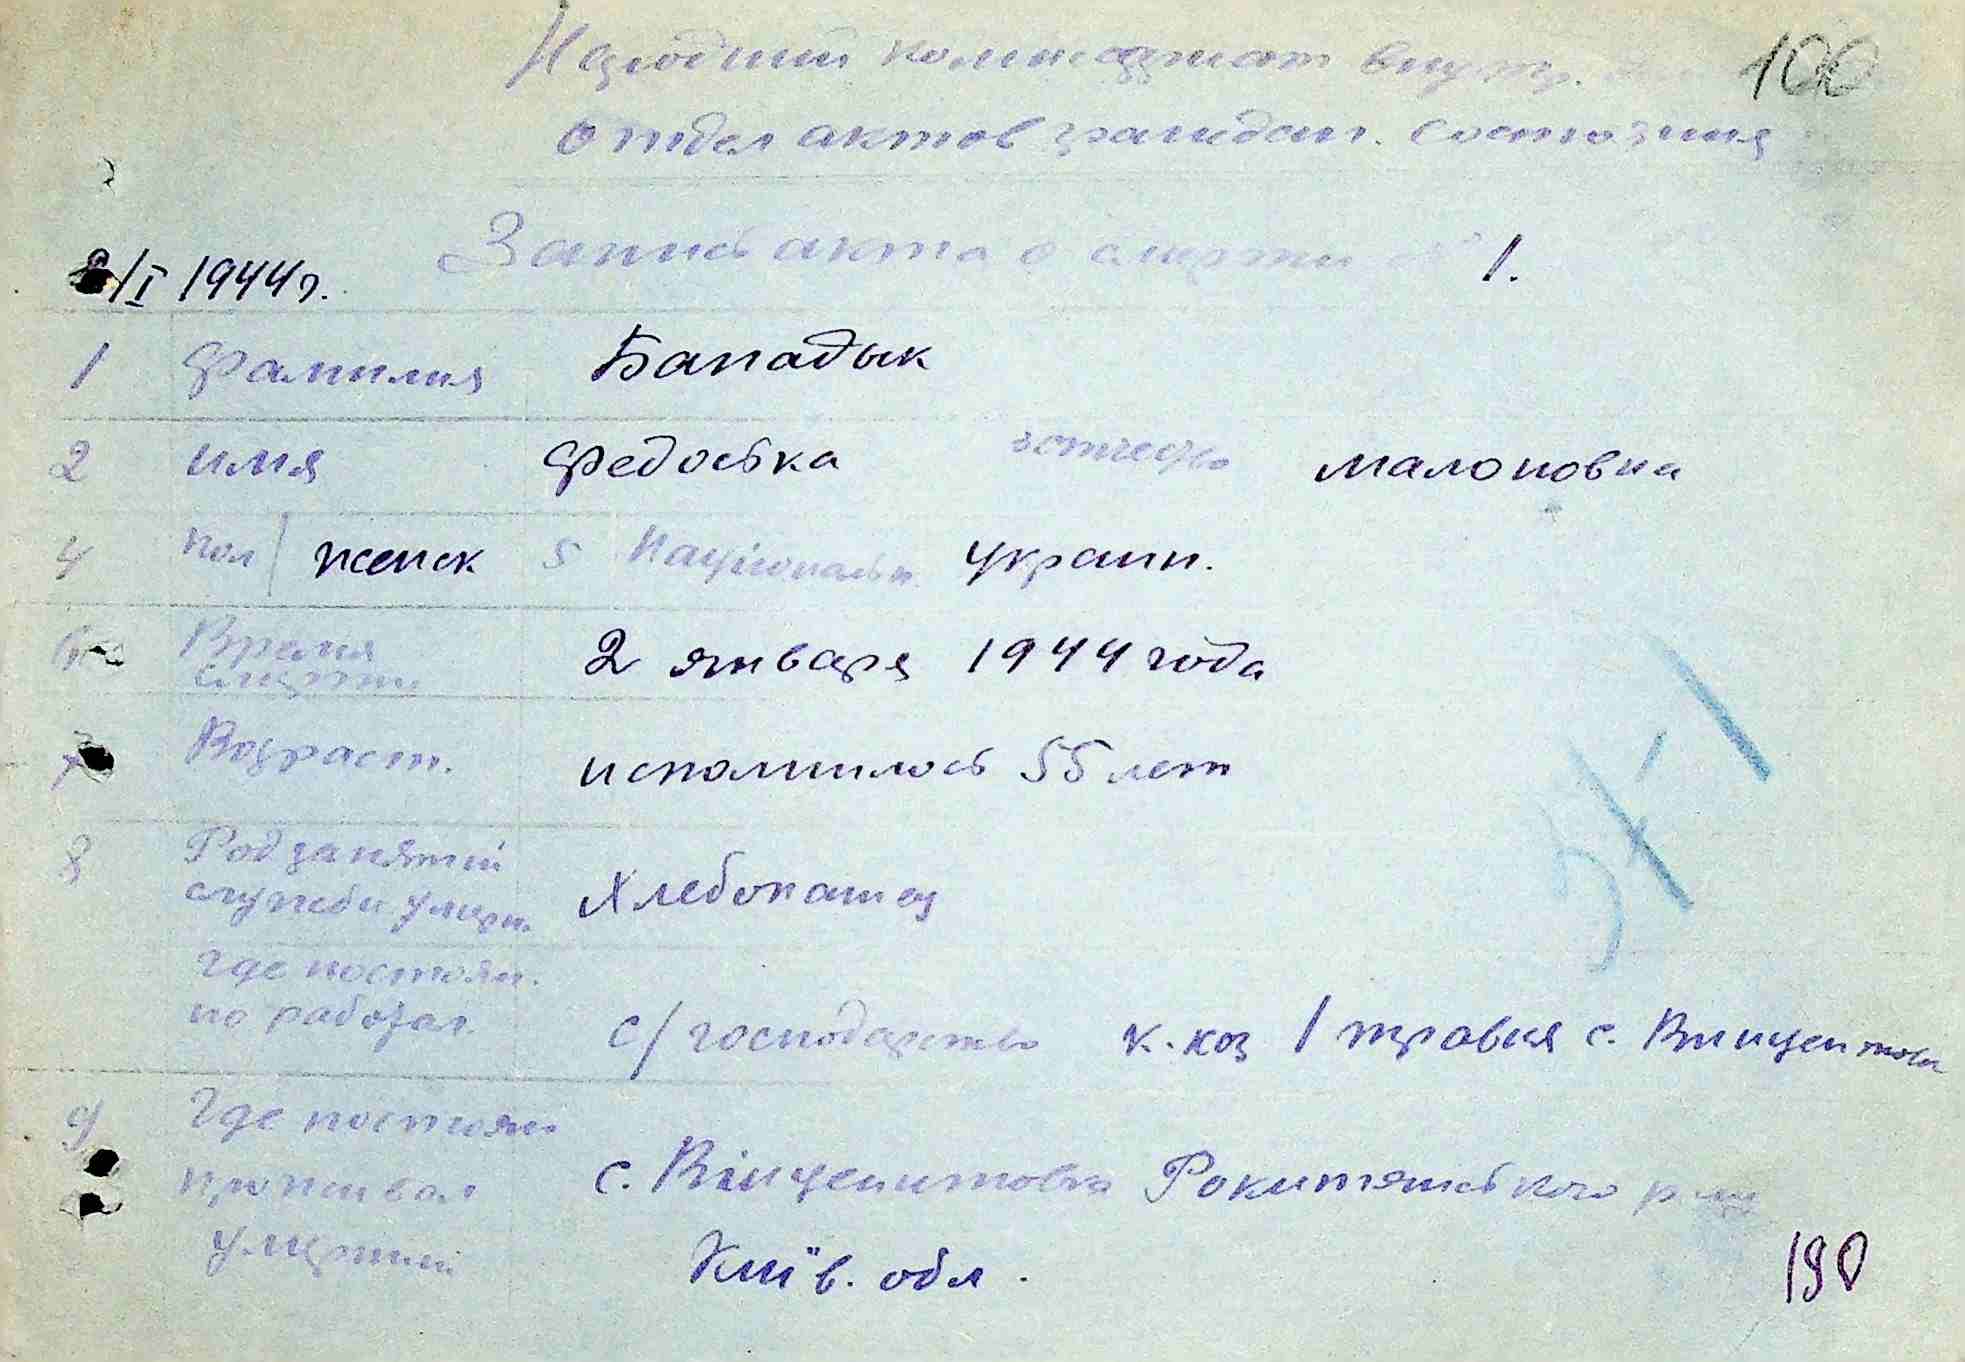 100
Народний комисариат внутр.
отдел актов граждан. состояния
Запись акта о смерти № 1.
2/I 1944 г.
1 Фамилия Банадык
2 имя Федоська 3 отчество Малоновна
4 Пол женск 5 Національн. Украин.
6 Время смерти 2 января 1944 года
7 Возраст. исполнилось 55 лет
8 Род занятий
службы умерш. Хлебопашец
Где постоян.
но работал с/господарство к.-коз 1 травня с. Винцентовка
9 Где постоян
проживал с. Вінцентовка Рокитянського р-ну
умерший Київ. обл.
190